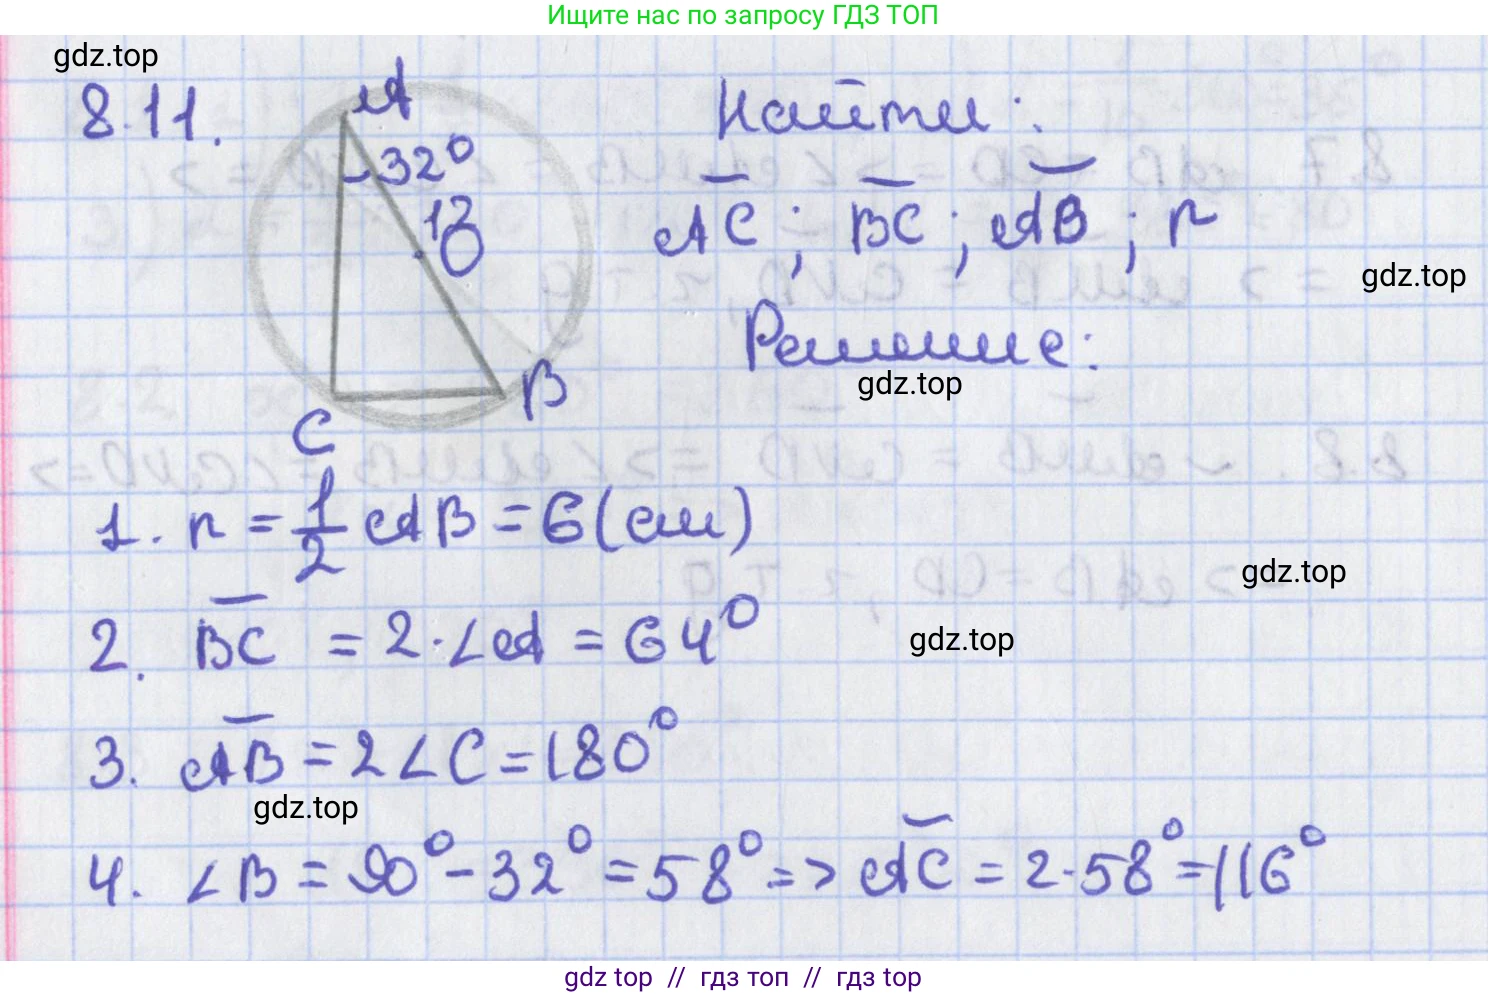 Ищите нас по запросу ГДЗ ТОП
gdz.top
8.11.
A
32°
12
O
B
C
Найти:
AC; BC; AB; r
gdz.top
Решение:
gdz.top
1. r = 1/2 AB = 6 (см)
gdz.top
2. BC = 2·∠A = 64°
gdz.top
3. AB = 2∠C = 180°
gdz.top
4. ∠B = 90° - 32° = 58° => AC = 2·58° = 116°
gdz top // гдз топ // гдз top